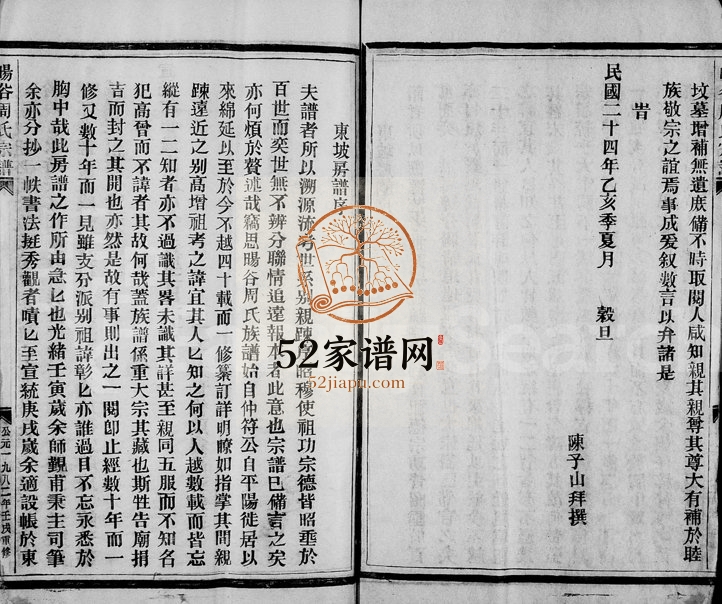 墳墓增補無遺庶備不時取閱人咸知親其親尊其尊大有補於睦
族敬宗之誼焉事成爰叙數言以弁諸是
旹
民國二十四年乙亥季夏月 穀旦
陳子山拜撰
東坡房譜序
夫譜者所以溯源流考世系别親疎
昭穆使祖功宗德皆昭垂於
百世而奕世無不辨分聯情追遠報本者此意也宗譜已備言之矣
亦何煩於贅述哉竊思暘谷周氏族譜始自仲符公自平陽徙居以
來綿延以至於今不越四十載而一修纂訂詳明瞭如指掌其間親
踈遠近之别高增祖考之諱宜其人匕知之何以人越數載而皆忘
縱有一二知者亦不過識其畧未識其詳甚至親同五服而不知名
犯高曾而不諱者其故何哉蓋族譜係重大宗其藏也斯牲告廟捐
吉而封之其開也亦然是故有事則出之一閱卽止經數十年而一
修又數十年而一見雖支分派别祖諱彰匕亦誰過目不忘永悉於
胸中哉此房譜之作所由急匕也光緒壬寅歲余師觀甫秉主司筆
余亦分抄一帙書法挺秀觀者嘖匕至宣統庚戌歲余適設帳於東
暘谷周氏宗譜
公元一九八二年壬戌重修
52家谱网
52jiapu.com